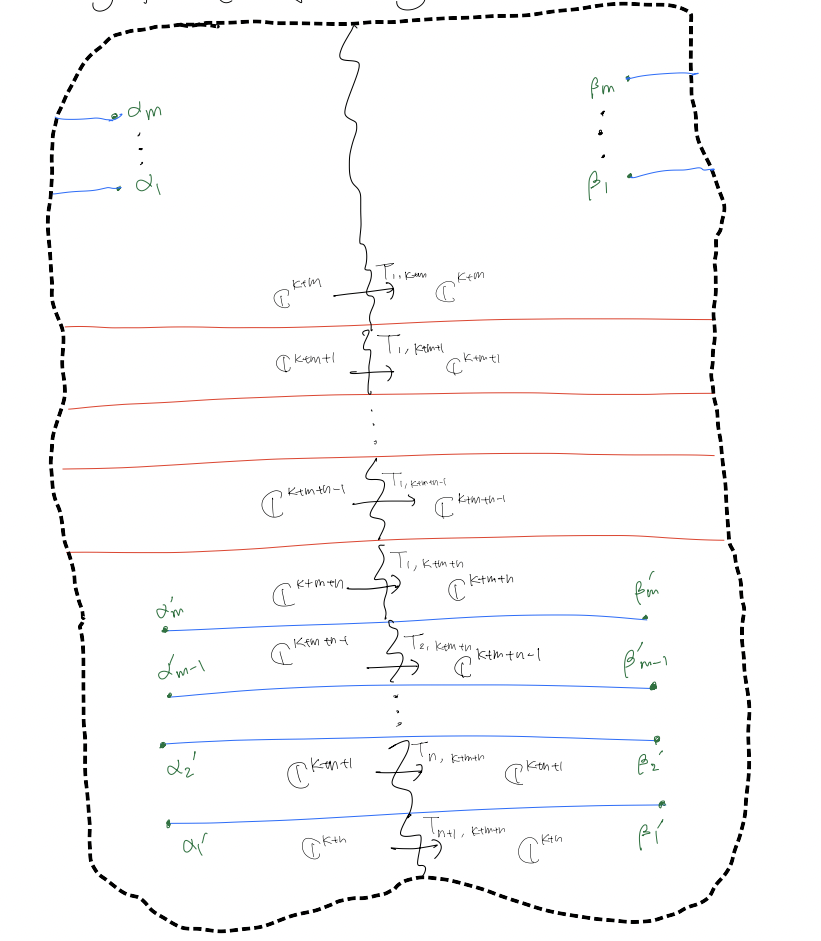 αm
βm
⋮
⋮
α1
β1
ℂ^{k+m} → T_{1,k+m} ℂ^{k+m}
ℂ^{k+m+1} → T_{1,k+m+1} ℂ^{k+m+1}
⋮
ℂ^{k+m+n-1} → T_{1,k+m+n-1} ℂ^{k+m+n-1}
ℂ^{k+m+n} → T_{1,k+m+n} ℂ^{k+m+n}
α'm
β'm
ℂ^{k+m+n-1} → T_{2,k+m+n} ℂ^{k+m+n-1}
α'm-1
β'm-1
⋮
α2'
ℂ^{k+m+1} → T_{n,k+m+n} ℂ^{k+m+1}
β2'
α1'
ℂ^{k+n} → T_{n+1,k+m+n} ℂ^{k+n}
β1'